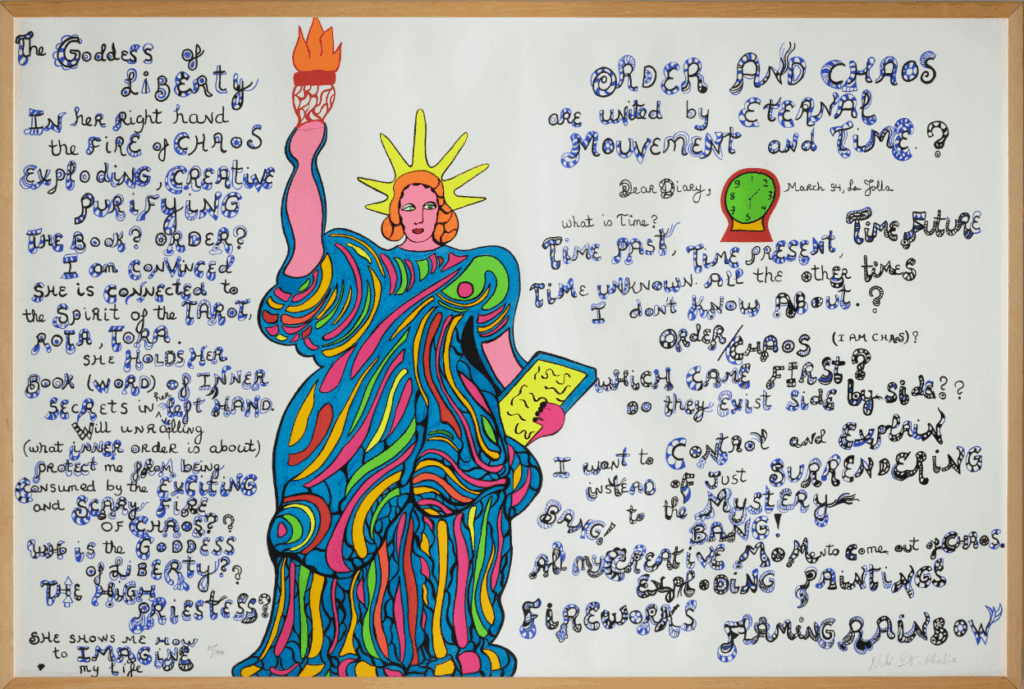 The Goddess of
LIBERTY
IN her Right hand
the FIRE of CHAOS
EXPLODING, CREATIVE
PURIFYING
THE BOOK? ORDER?
I am CONVINCED
SHE IS CONNECTED to
the Spirit of the TAROT,
ROTA, TORA.
SHE HOLDS HER
BOOK (WORD) of INNER
SECRETS in her left HAND.
Will UNRavelling
(what INNER ORDER is about)
protect me from being
Consumed by the EXCITING
and SCARY FIRE
OF CHAOS??
Who is the GODDESS
of LIBERTY??
THE HIGH
PRIESTESS?
SHE SHOWS ME HOW
to IMAGINE
my life
ORDER AND CHAOS
are united by ETERNAL
MOUVEMENT and TIME.?
Dear Diary,
March 94, La Jolla
What is Time?
TIME PAST, TIME PRESENT, TIME FUTURE
TIME UNKNOWN. All the other times
I don't KNOW ABOUT.?
ORDER/CHAOS (I AM CHAOS)?
WHICH CAME FIRST?
DO they EXIST Side by side??
I want to CONTROL and EXPLAIN
instead of just SURRENDERING
to the MYSTERY
BANG!
BANG!
All my CREATIVE MOMents come out of CHAOS.
EXPLODING PAINTINGS
FIREWORKS
FLAMING RAINBOW